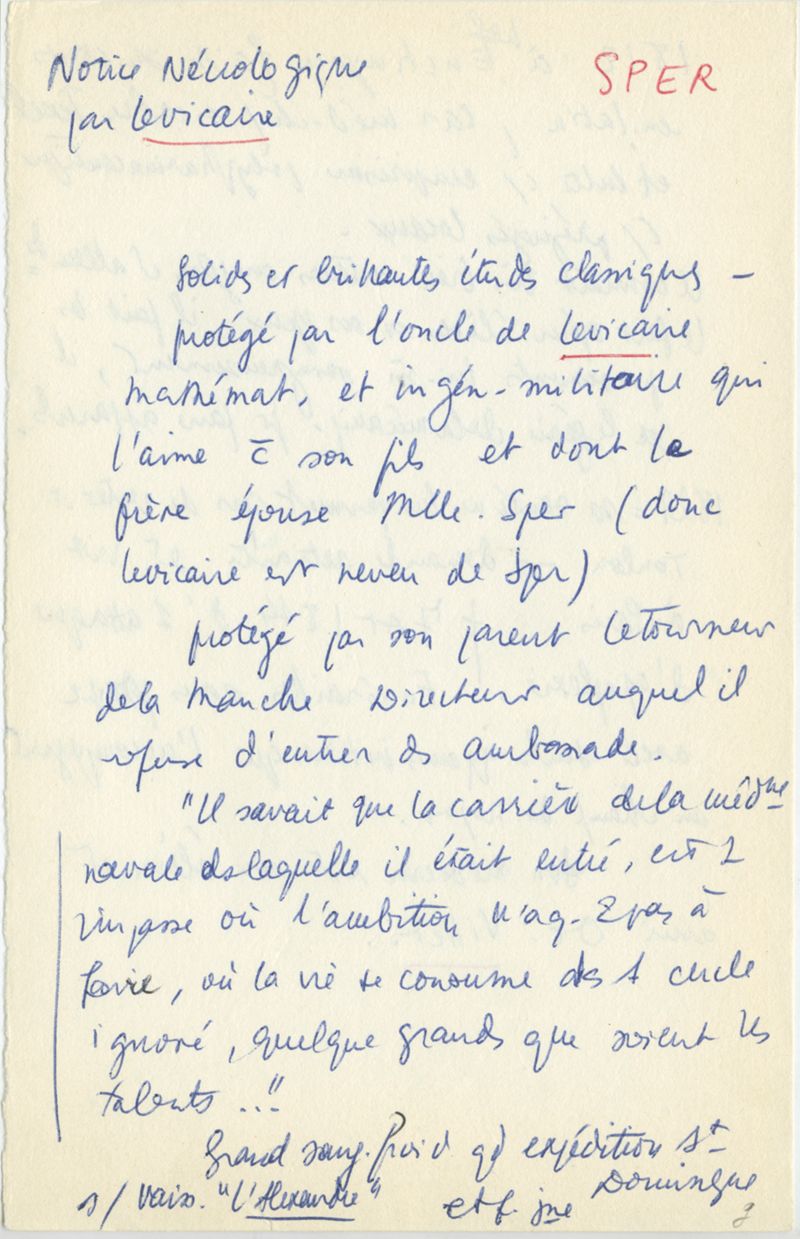 Notice Nécrologique
SPER
par Levicaire
Solides et brillantes études classiques –
protégé par l'oncle de Levicaire
mathémat. et ingén. militaire qui
l'aime c̄ son fils et dont le
frère épouse Mlle. Sper (donc
Levicaire est neveu de Sper)
protégé par son parent Letourneur
de la Manche Directeur auquel il
refuse d'entrer ds ambassade.
"Il savait que la carrière de la méd^ne
navale ds laquelle il était entré, est 1
impasse où l'ambition n'a q. 2 pas à
faire, où la vie se consume ds 1 cercle
ignoré, quelque grands que soient les
talents ..."
Grand sang-froid qd expédition St
Domingue
s/ vaiss. "L'Alexandre" et f. jne